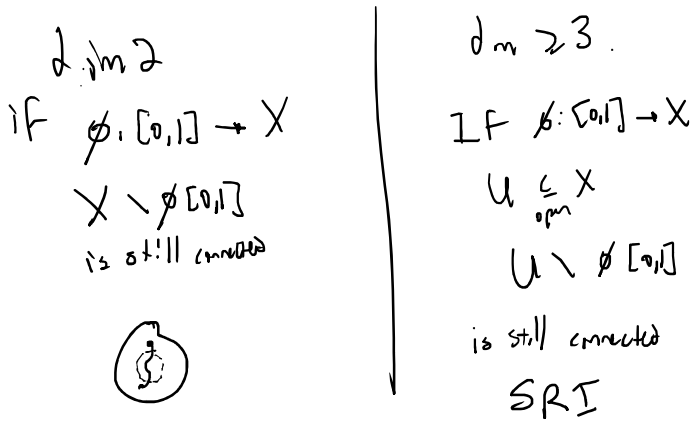 dim 2
if ϕ: [0,1] → X
X \ ϕ[0,1]
is still connected
dm ≥ 3.
IF ϕ: [0,1] → X
U ⊆ X
open
U \ ϕ [0,1]
is still connected
SRI